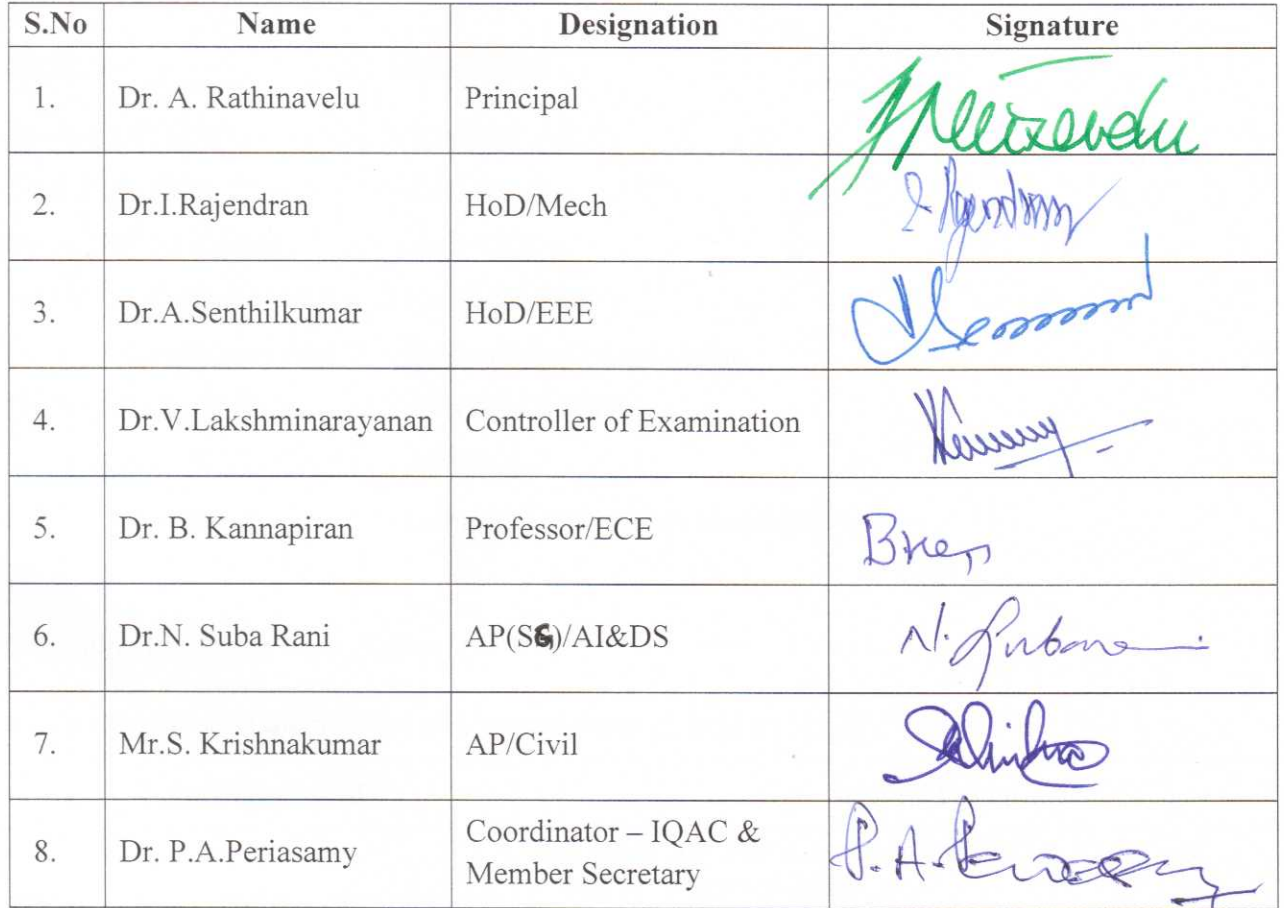 S.No Name Designation Signature
1. Dr. A. Rathinavelu Principal
2. Dr.I.Rajendran HoD/Mech
3. Dr.A.Senthilkumar HoD/EEE
4. Dr.V.Lakshminarayanan Controller of Examination
5. Dr. B. Kannapiran Professor/ECE
6. Dr.N. Suba Rani AP(SG)/AI&DS
7. Mr.S. Krishnakumar AP/Civil
8. Dr. P.A.Periasamy Coordinator – IQAC &
Member Secretary